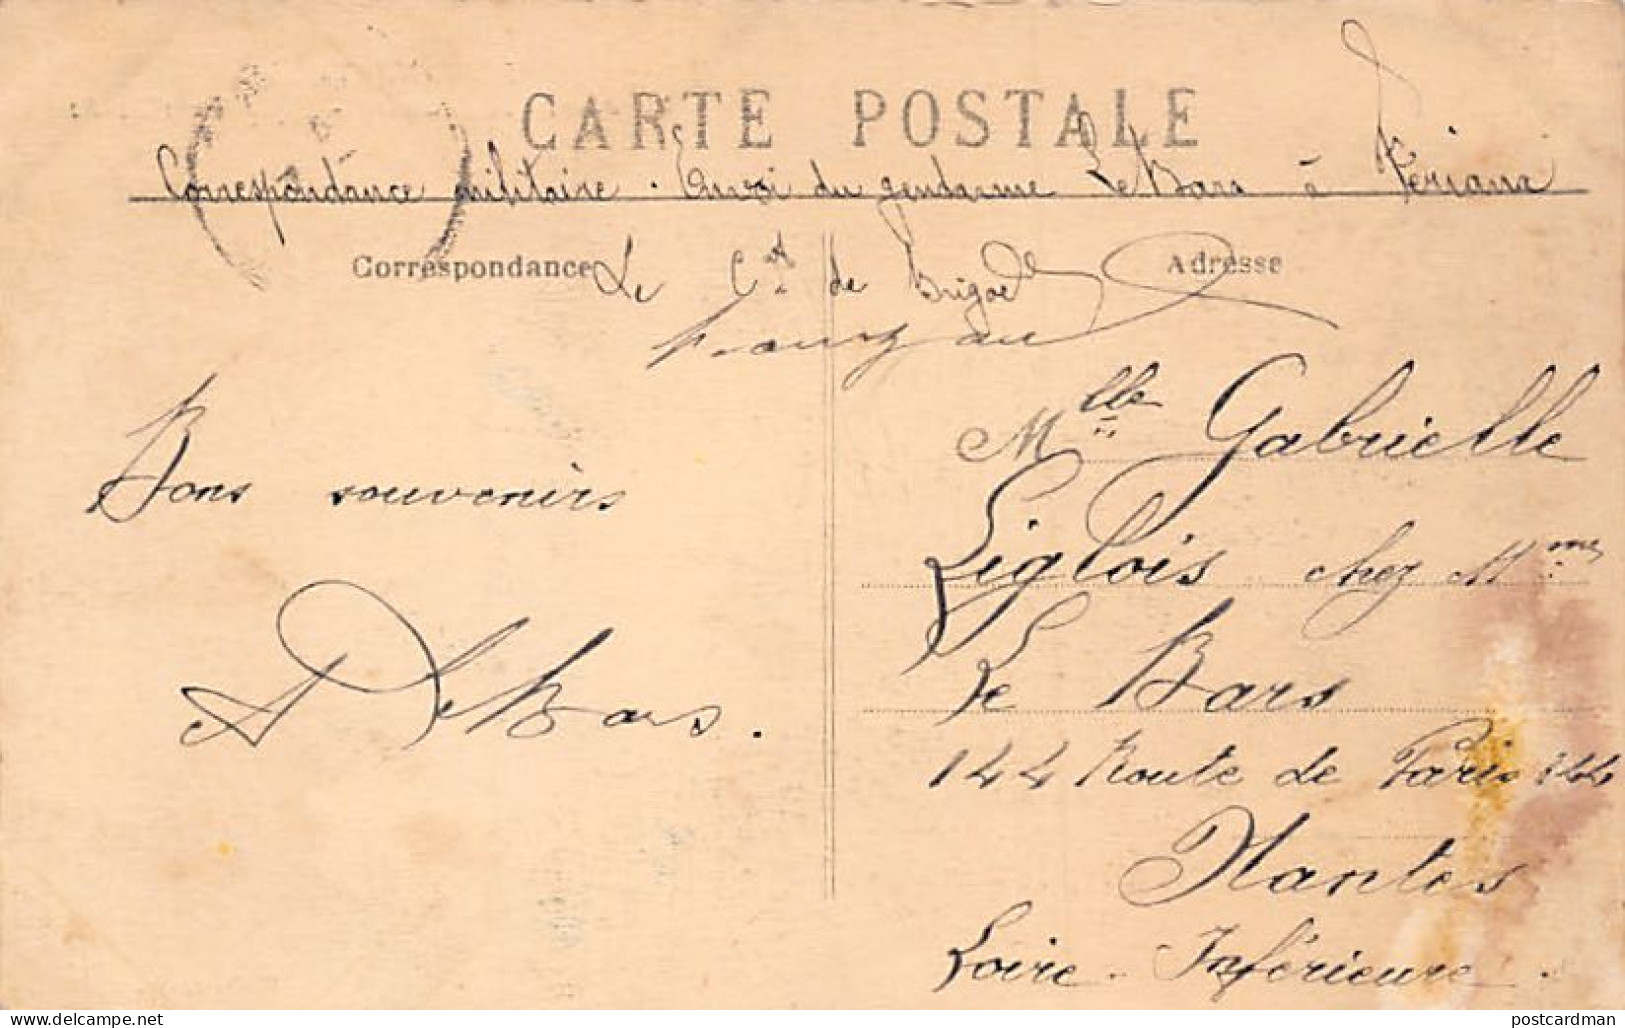 CARTE POSTALE
Correspondance militaire. Envoi du gendarme Le Bars à Feriana
Correspondance
Adresse
Le Ct de Brigade
Bons souvenirs
A Le Bars.
Mlle Gabrielle
Liglois chez Mme
Le Bars
144 Route de Paris 144
Nantes
Loire-Inférieure.
postcardman